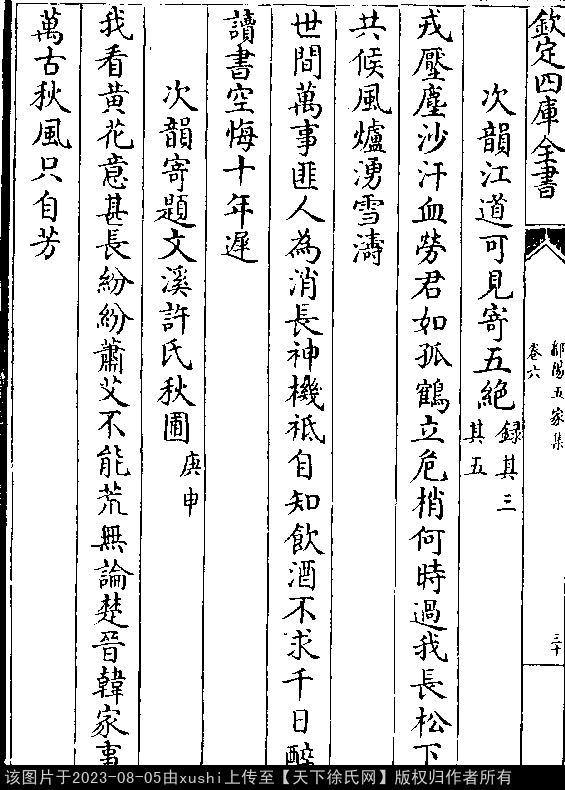 欽定四庫全書
鄱陽五家集
卷六
三十
次韻江道可見寄五絶
録其三
其五
戎壓塵沙汗血勞君如孤鶴立危梢何時過我長松下
共候風爐湧雪濤
世間萬事匪人為消長神機祗自知飲酒不求千日醉
讀書空悔十年遲
次韻寄題文溪許氏秋圃
庚申
我看黄花意甚長紛紛蕭艾不能荒無論楚晉韓家事
萬古秋風只自芳
该图片于2023-08-05由xushi上传至【天下徐氏网】版权归作者所有